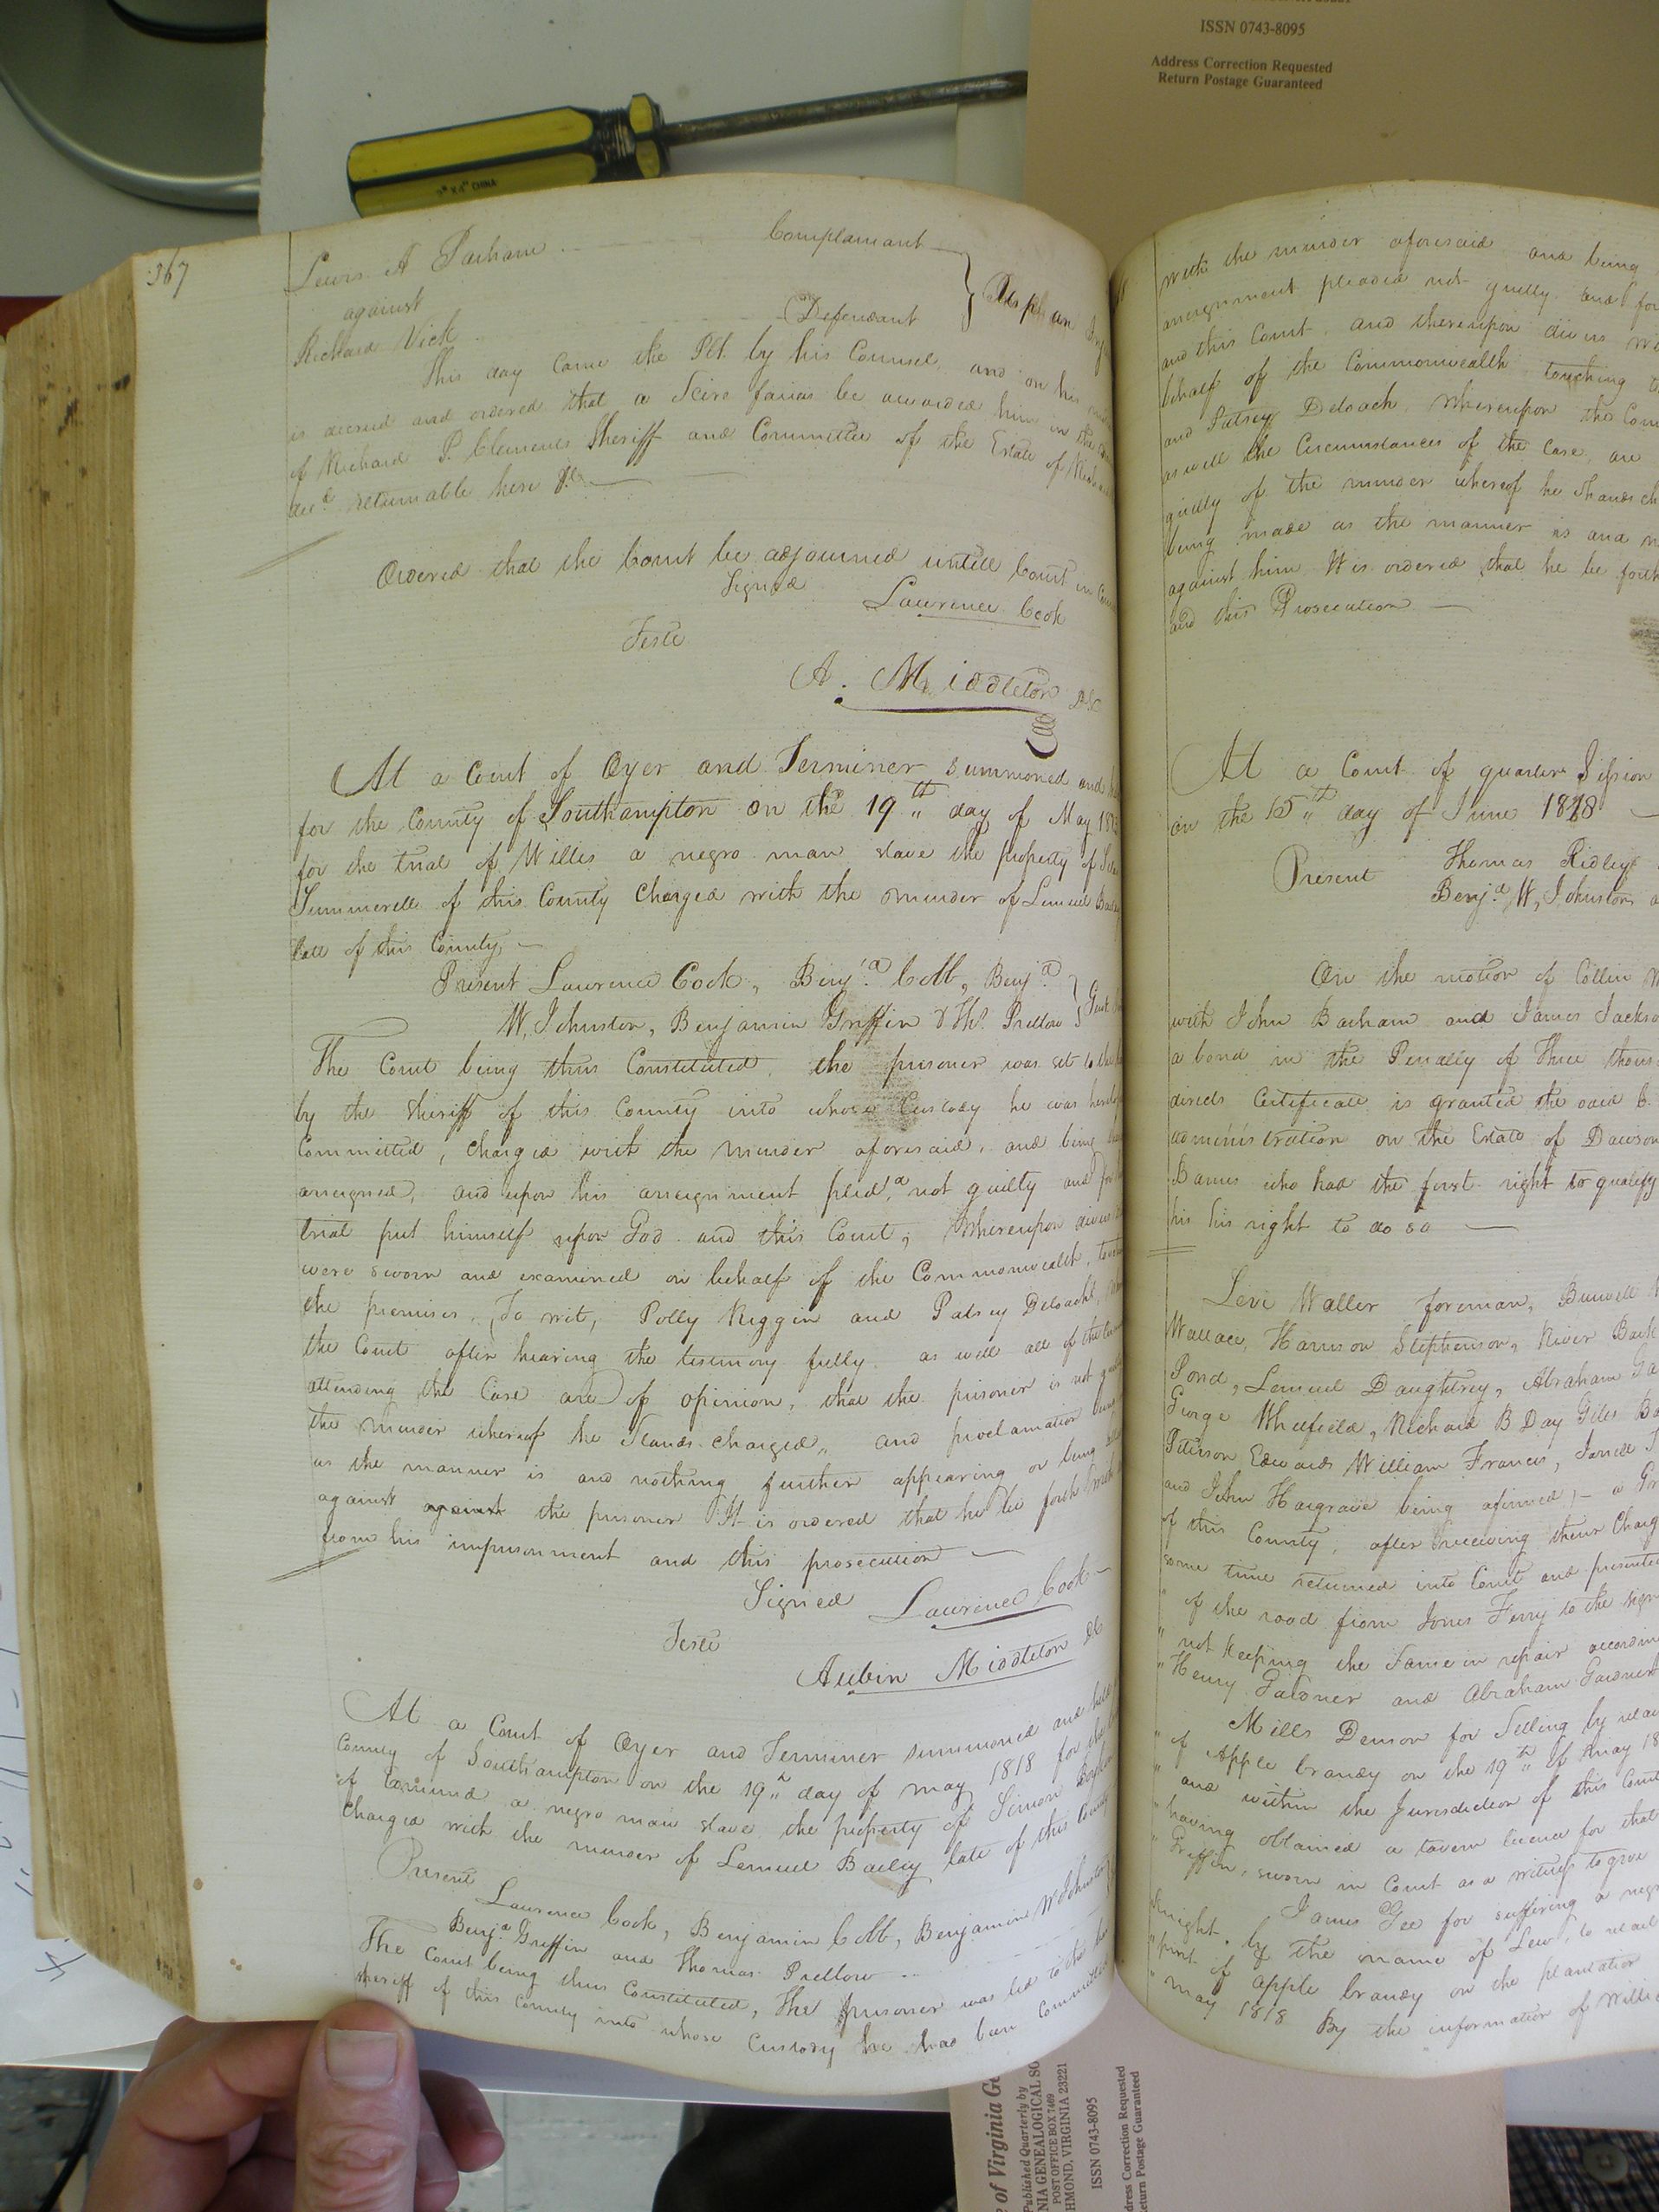 ISSN 0743-8095
Address Correction Requested
Return Postage Guaranteed
CHINA
367
Lewis A Parham Complainant
against
Richard Vick Defendant
This day came the Plt. by his Counsel, and on his
is decreed and ordered that a Scire facias be awarded him in the
of Richard P. Clements Sheriff and Committee of the Estate of
decd. returnable here &c
Ordered that the Court be adjourned untill Court in
Signed
Lawrence Cook
Teste
A. Middleton DC
At a Court of Oyer and Terminer summoned and
for the County of Southampton on the 19th day of May
for the trial of Willis a negro man slave the property of
Summerell of this County Charged with the murder of Lemuel
late of this County
Present Lawrence Cook, Benja. Cobb, Benja.
W. Johnston, Benjamin Griffin & Ths. Pretlow
The Court being thus Constituted, the prisoner was set to the
by the Sheriff of this County into whose Custody he was
Committed, Charged with the murder aforesaid, and being
arreigned, and upon his arreignment plead not guilty and for
trial put himself upon God and this Court, Whereupon
were sworn and examined on behalf of the Commonwealth,
the premises, To wit, Polly Riggin and Patsey Deloach,
the Court after hearing the testimony fully as well all of the
attending the Case are of opinion, that the prisoner is not
the murder whereof he Stands charged, and proclamation
as the manner is and nothing further appearing or being
against against the prisoner It is ordered that he be forth
from his imprisonment and this prosecution
Signed Lawrence Cook
Teste
Aubin Middleton DC
At a Court of Oyer and Terminer summoned and held
County of Southampton on the 19th day of may 1818 for the
of a negro man slave the property of Simon
Charged with the murder of Lemuel Bailey late of this County
Present
Lawrence Cook, Benjamin Cobb, Benjamin W Johnston
Benja. Griffin and Thomas Pretlow
The Court being thus Constituted, the prisoner was led to the
sheriff of this County into whose Custody he has been Committed
with the murder aforesaid and being
arreignment pleaded not guilty and for
and this Court, and thereupon divers
behalf of the Commonwealth touching
and Patsey Deloach, Whereupon the
as well the Circumstances of the Case, are
guilty of the murder whereof he Stands
being made as the manner is and
against him It is ordered that he be forth
and this Prosecution
At a Court of quarter Session
on the 15th day of June 1818
Present Thomas Ridley
Benja. W. Johnston
On the motion of Collin
with John Barham and James
a bond in the Penalty of Three
directs Certificate is granted the said
administration on the Estate of
Barnes who had the first right to qualify
his his right to do so
Levi Waller foreman, Burwell
Wallace, Harrison Stephenson,
Pond, Lemuel Daughtrey, Abraham
George Whitfield, Richard B Day Giles
Peterson Edwards William Francis,
and John Hargrave being afirmed) a
of this County, after receiving their Charge
some time returned into Court and presented
" of the road from Jones Ferry to the
" not keeping the Same in repair
" Henry Gardner and Abraham Gardner
Mills Denson for Selling by
" of Apple brandy on the 19th of may
" and within the Jurisdiction of this Court
" having obtained a tavern licence for that
" Griffin, sworn in Court as a witness to give
James Gee for suffering a
Knight, by the name of Lew, to
" pint of apple brandy on the plantation
" may 1818 By the information of
of Virginia
Published Quarterly by
POST OFFICE BOX 7469
VIRGINIA 23221
ISSN 0743-8095
Address Correction Requested
Return Postage Guaranteed